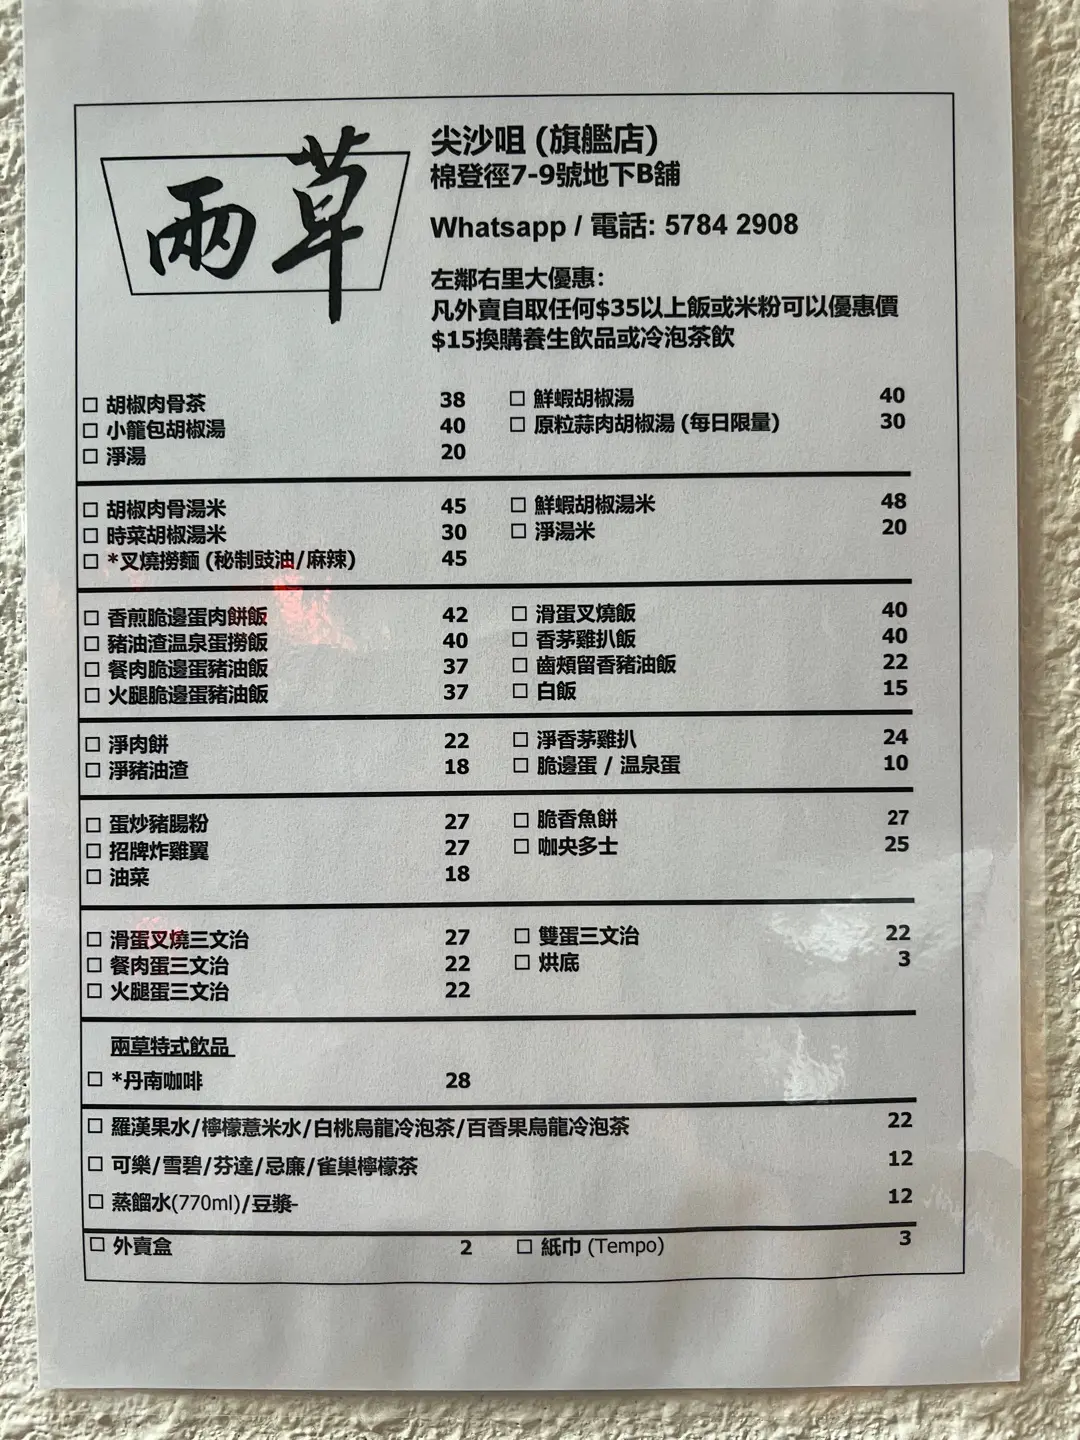 兩草
尖沙咀 (旗艦店)
棉登徑7-9號地下B舖
Whatsapp / 電話: 5784 2908
左鄰右里大優惠:
凡外賣自取任何$35以上飯或米粉可以優惠價
$15換購養生飲品或冷泡茶飲
□ 胡椒肉骨茶 38 □ 鮮蝦胡椒湯 40
□ 小籠包胡椒湯 40 □ 原粒蒜肉胡椒湯 (每日限量) 30
□ 淨湯 20
□ 胡椒肉骨湯米 45 □ 鮮蝦胡椒湯米 48
□ 時菜胡椒湯米 30 □ 淨湯米 20
□ *叉燒撈麵 (秘制豉油/麻辣) 45
□ 香煎脆邊蛋肉餅飯 42 □ 滑蛋叉燒飯 40
□ 豬油渣温泉蛋撈飯 40 □ 香茅雞扒飯 40
□ 餐肉脆邊蛋豬油飯 37 □ 齒頰留香豬油飯 22
□ 火腿脆邊蛋豬油飯 37 □ 白飯 15
□ 淨肉餅 22 □ 淨香茅雞扒 24
□ 淨豬油渣 18 □ 脆邊蛋 / 温泉蛋 10
□ 蛋炒豬腸粉 27 □ 脆香魚餅 27
□ 招牌炸雞翼 27 □ 咖央多士 25
□ 油菜 18
□ 滑蛋叉燒三文治 27 □ 雙蛋三文治 22
□ 餐肉蛋三文治 22 □ 烘底 3
□ 火腿蛋三文治 22
兩草特式飲品
□ *丹南咖啡 28
□ 羅漢果水/檸檬薏米水/白桃烏龍冷泡茶/百香果烏龍冷泡茶 22
□ 可樂/雪碧/芬達/忌廉/雀巢檸檬茶 12
□ 蒸餾水(770ml)/豆漿- 12
□ 外賣盒 2 □ 紙巾 (Tempo) 3